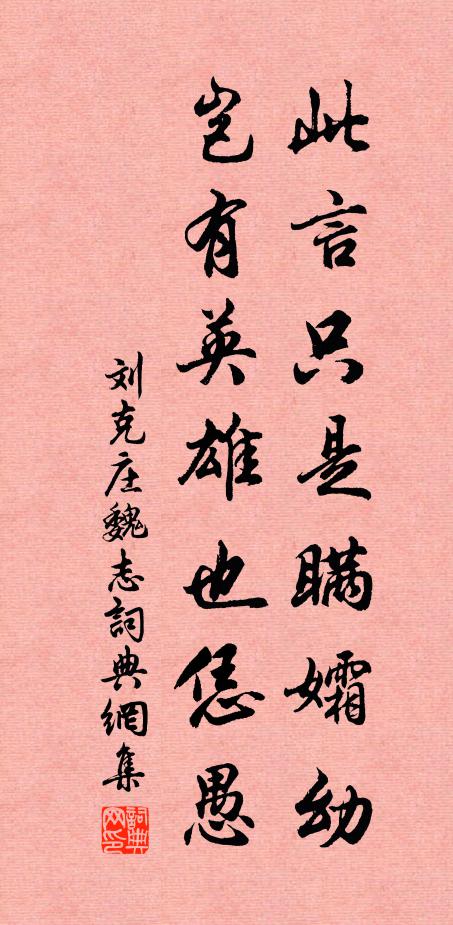 此言只是瞒孀幼
岂有英雄也恁愚
刘克庄魏志詞典網集
詞典网印